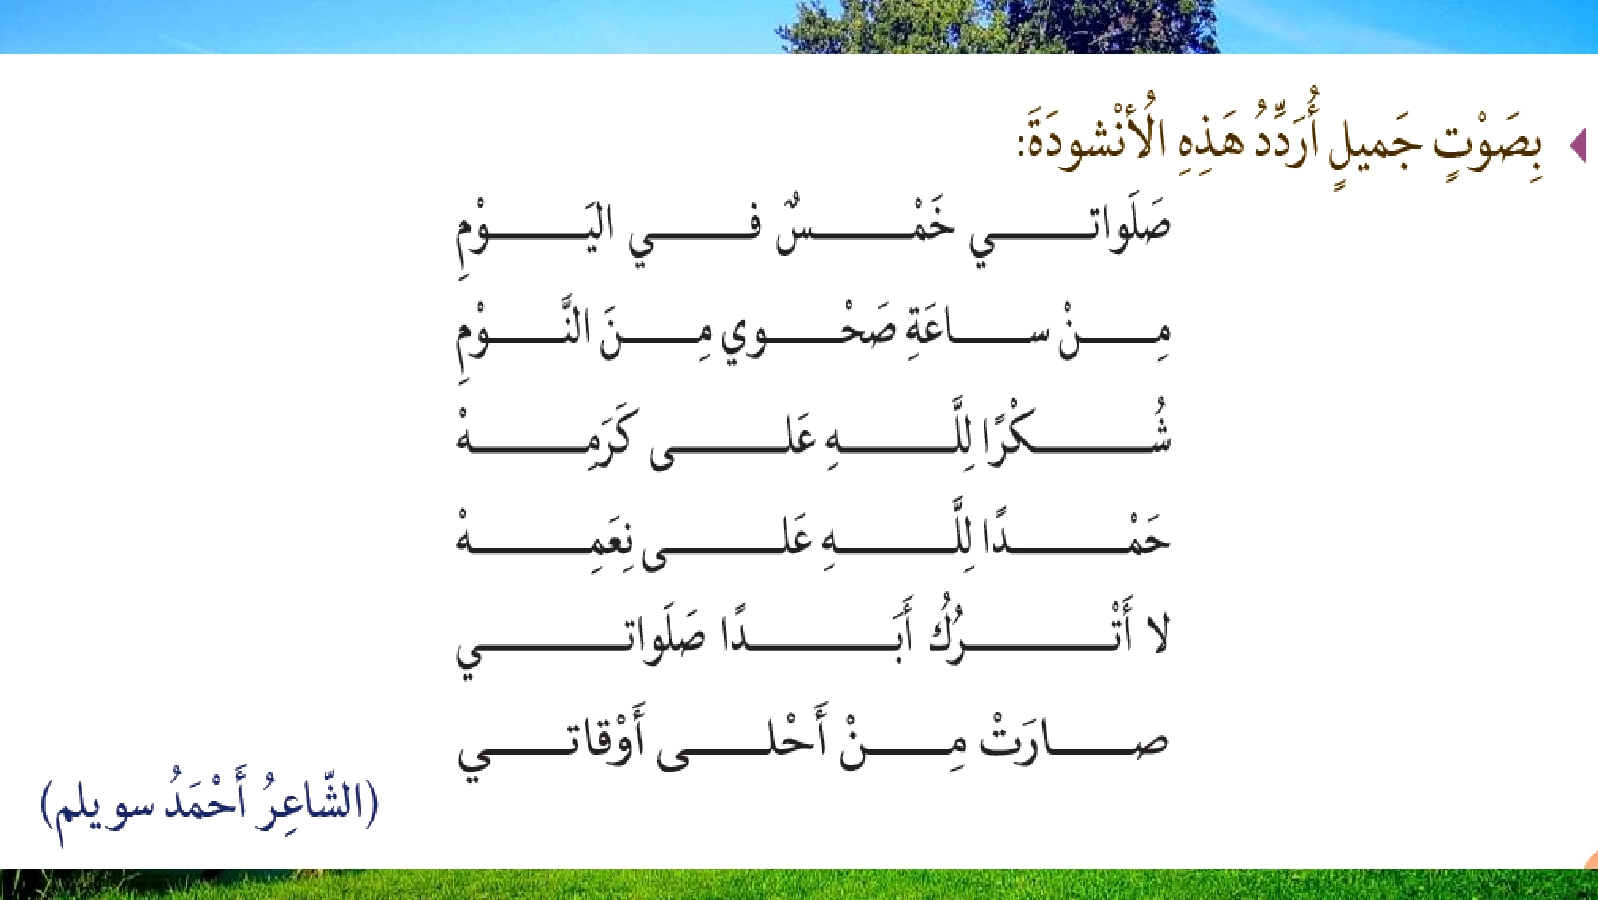 بِصَوْتٍ جَميلٍ أُرَدِّدُ هَذِهِ الْأُنْشودَةَ:
صَلَواتي خَمْسٌ في اليَوْمِ
مِنْ ساعَةِ صَحْوي مِنَ النَّوْمِ
شُكْرًا لِلَّهِ عَلى كَرَمِهْ
حَمْدًا لِلَّهِ عَلى نِعَمِهْ
لا أَتْرُكُ أَبَدًا صَلَواتي
صارَتْ مِنْ أَحْلى أَوْقاتي
(الشّاعِرُ أَحْمَدُ سويلم)